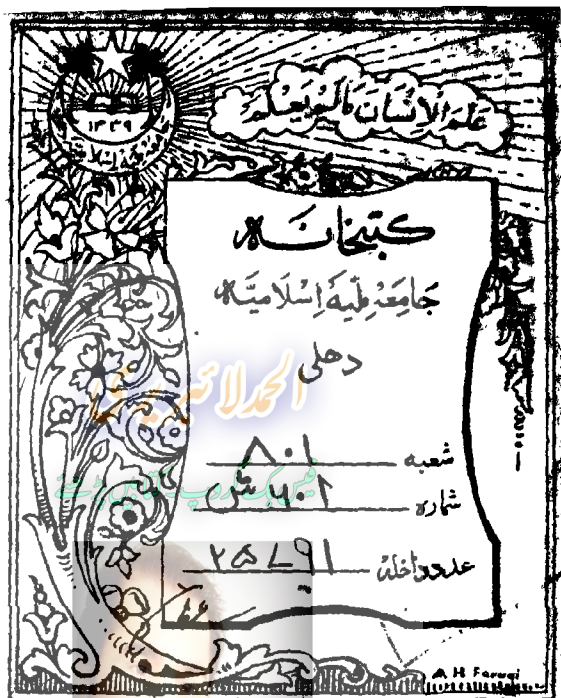 علم الانسان مالم یعلم
١٣٣٩
کتبخانہ
جامعہ ملیہ اسلامیہ
دهلی
الحمد لائبریری
شعبہ ٨٠١
شمارہ
عدد داخلہ ٢٥٧٩١
A H Faruqi